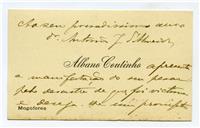 Ao seu presadissimo amigo
dr. Antonio J. d'Almeida
Albano Coutinho apresenta
a manifestação do seu pesar
pelo desastre de que foi victima
e deseja
Mogofores